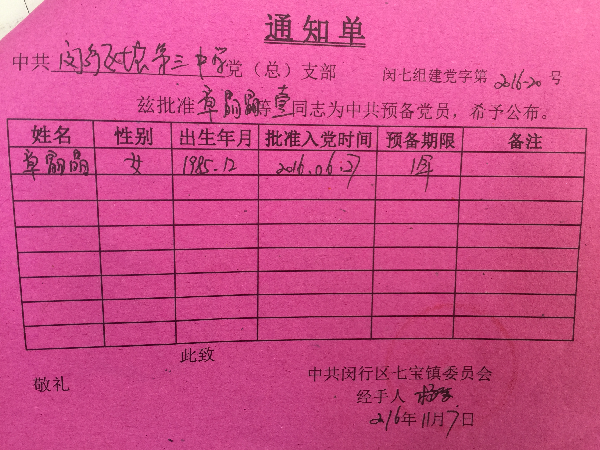 通知单
中共 闵行区七宝第三中学 党（总）支部 闵七组建党字第 2016-20 号
兹批准 卓晶晶 等 壹 同志为中共预备党员，希予公布。
姓名 性别 出生年月 批准入党时间 预备期限 备注
卓晶晶 女 1985.12 2016.06.27 1年
此致
敬礼
中共闵行区七宝镇委员会
经手人
2016年11月7日